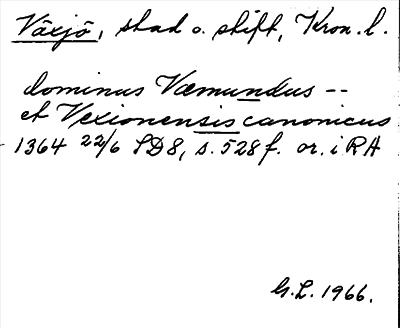 Växjö, stad o. stift, Kron. l.
dominus Væmundus --
et Vexionensis canonicus
1364 22/6 SD8, s. 528 f. or. i RA
G.L. 1966.